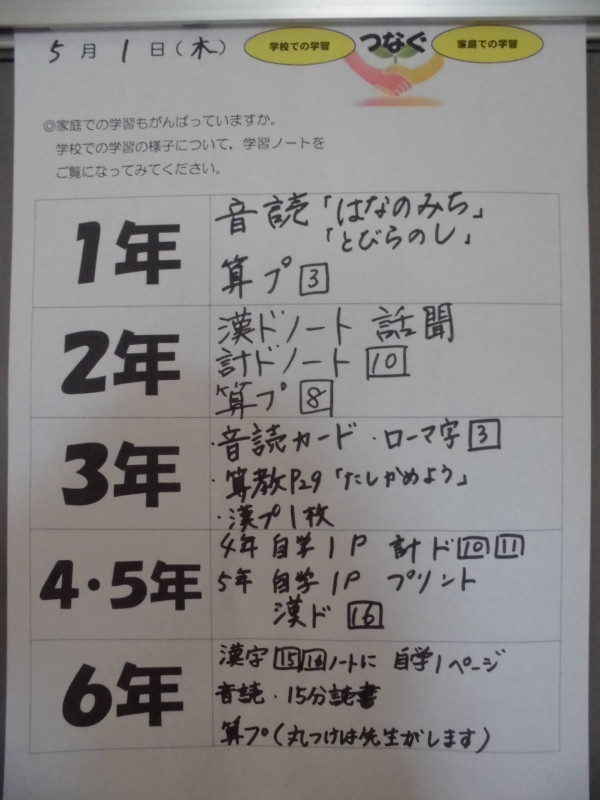 5月1日(木)
学校での学習 つなぐ 家庭での学習
◎家庭での学習もがんばっていますか。
学校での学習の様子について,学習ノートを
ご覧になってみてください。
1年
音読「はなのみち」
「とびらのし」
算プ 3
2年
漢ドノート 話 聞
計ドノート 10
算プ 8
3年
・音読カード ・ローマ字 3
・算教P29「たしかめよう」
・漢プ1枚
4・5年
4年 自学1P 計ド 10 11
5年 自学1P プリント
漢ド 16
6年
漢字 15 16 ノートに 自学1ページ
音読・15分読書
算プ(丸つけは先生がします)